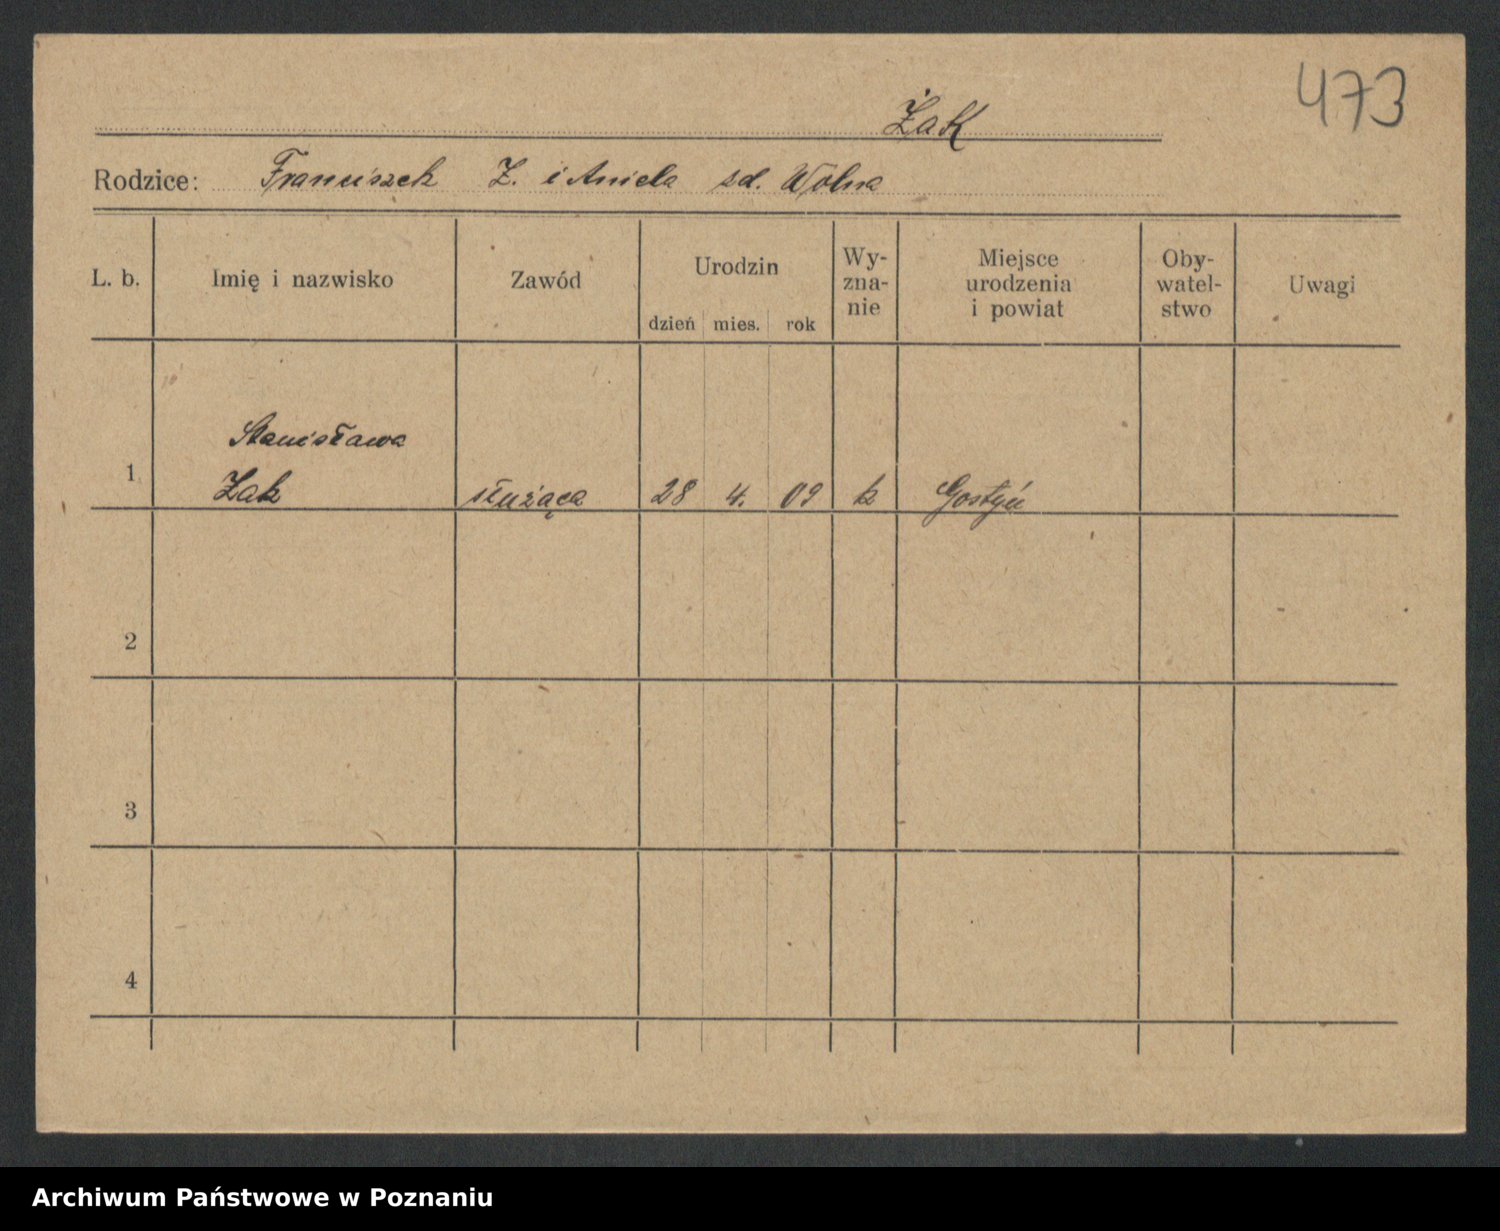 473
Żak
Rodzice: Franciszek Ż. i Aniela zd. Wolna
L. b. Imię i nazwisko Zawód Urodzin Wy- Miejsce Oby- Uwagi
zna- urodzenia watel-
dzień mies. rok nie i powiat stwo
Stanisława
1 Żak służąca 28 4. 09 k Gostyń
2
3
4
Archiwum Państwowe w Poznaniu